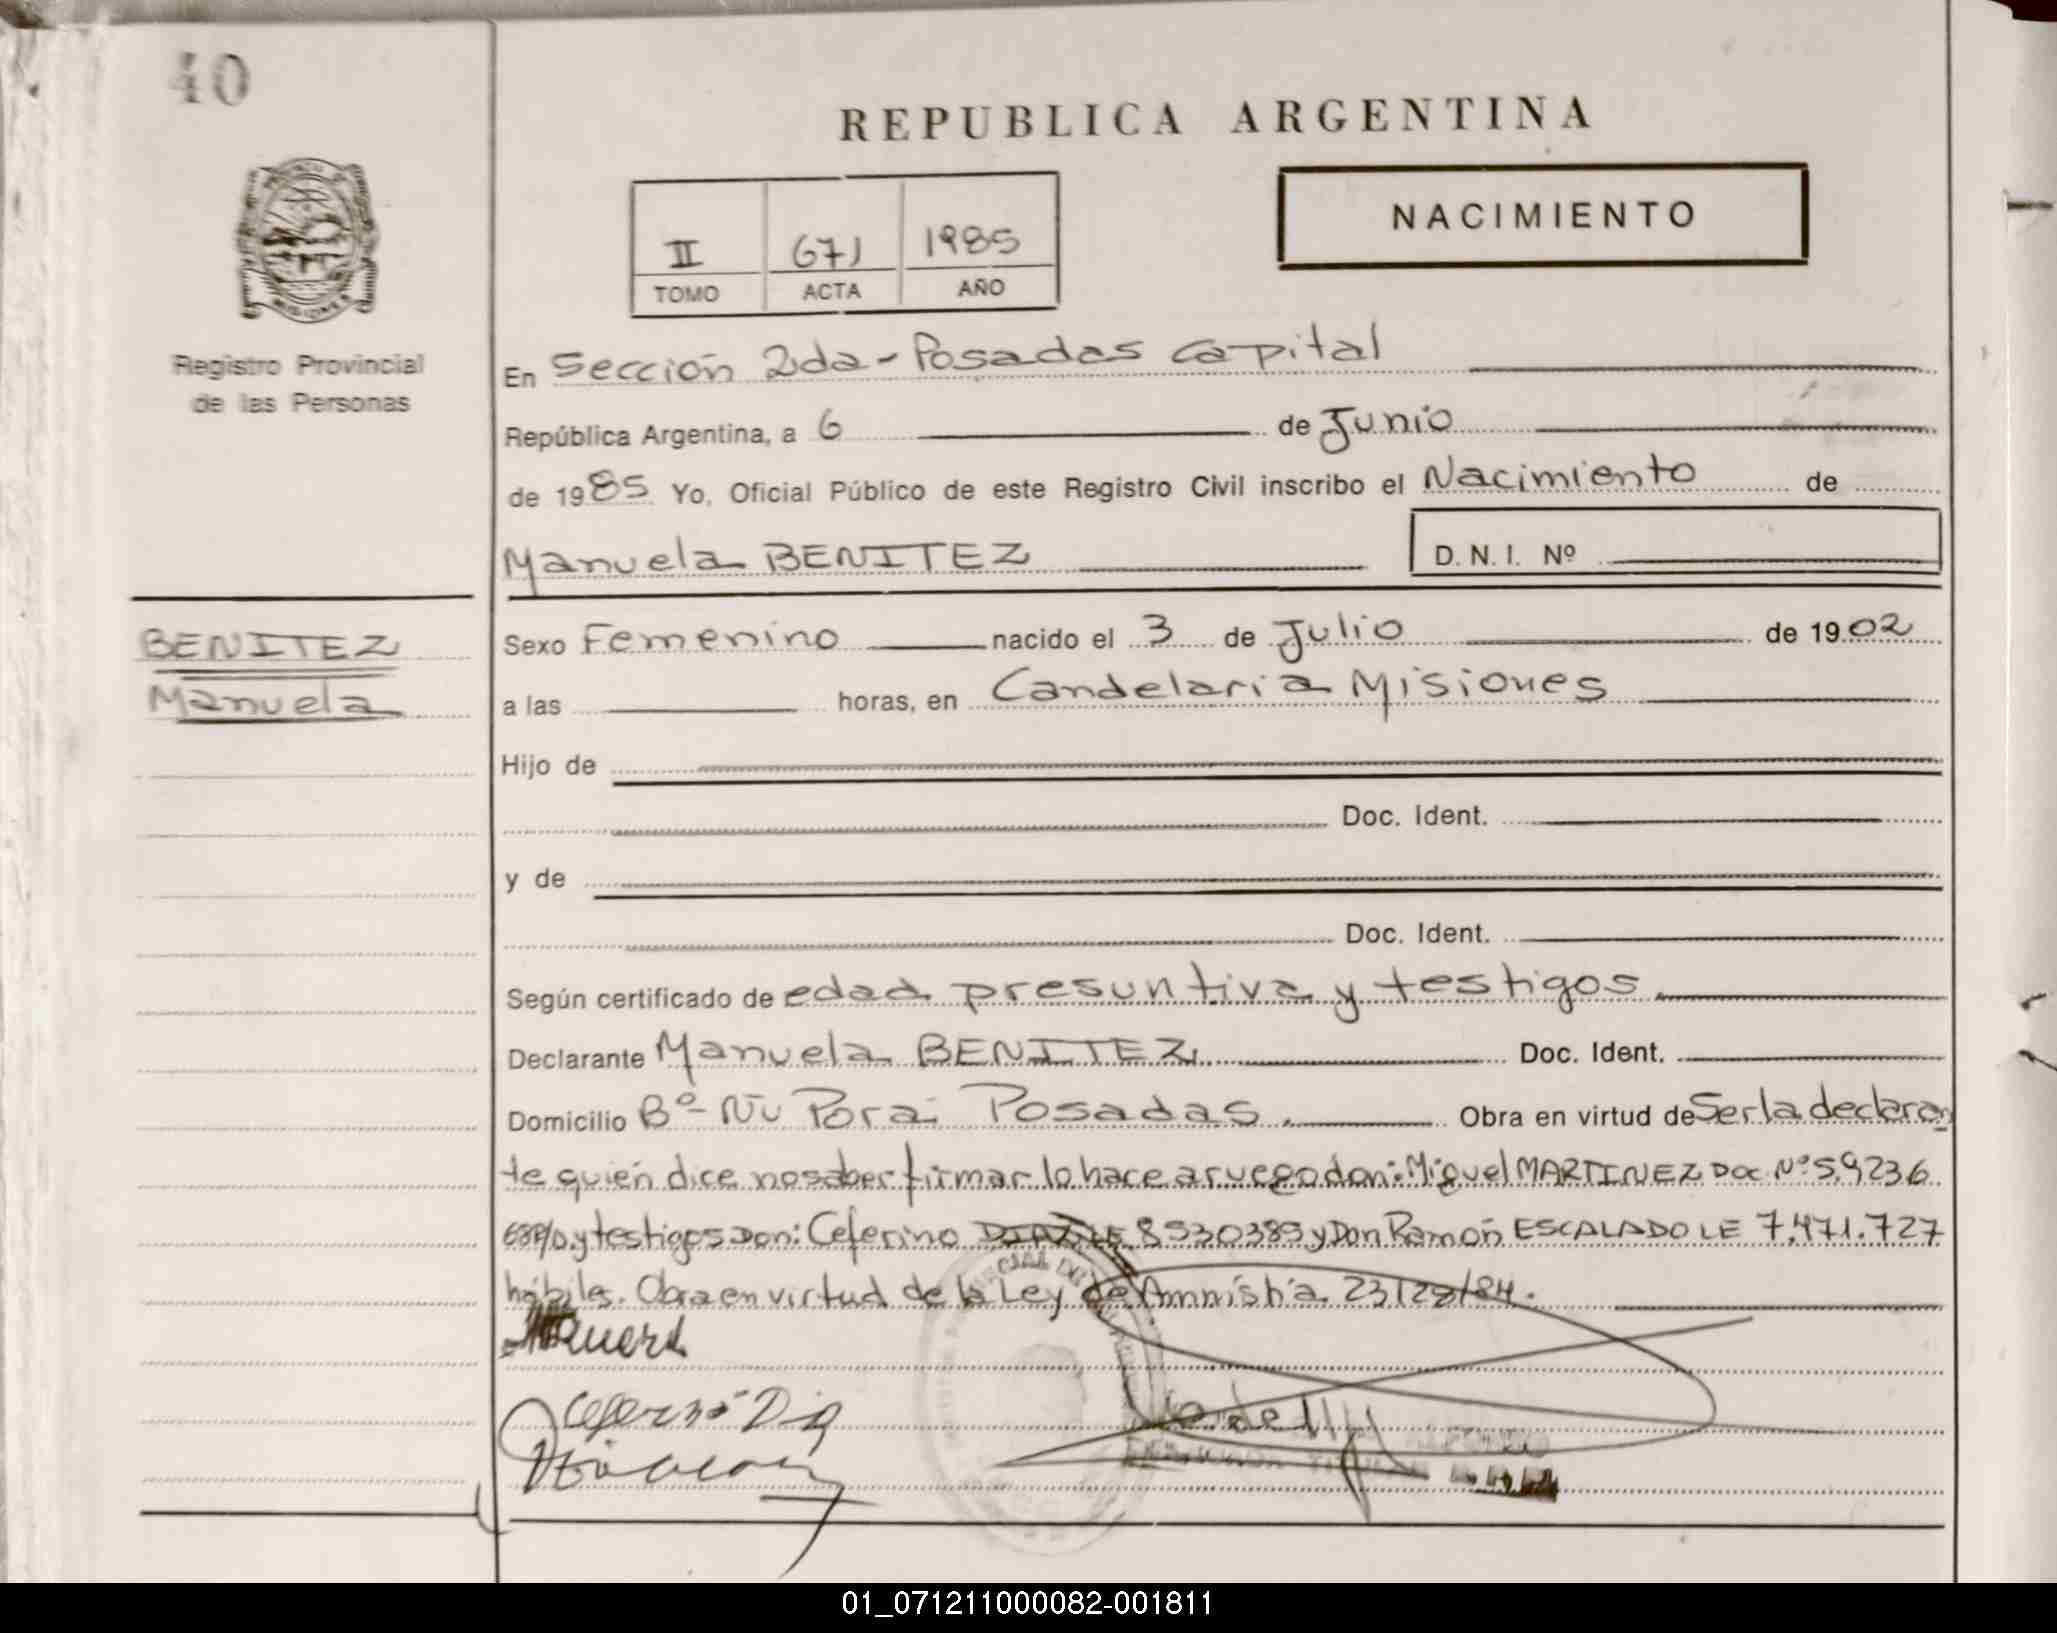 40
REPUBLICA ARGENTINA
NACIMIENTO
II 671 1985
TOMO ACTA AÑO
MISIONES
Registro Provincial
de las Personas
En Sección 2da - Posadas Capital
República Argentina, a 6 de Junio
de 1985 Yo, Oficial Público de este Registro Civil inscribo el Nacimiento de
Manuela BENITEZ D. N. I. Nº
BENITEZ
Manuela
Sexo Femenino nacido el 3 de Julio de 1902
a las horas, en Candelaria Misiones
Hijo de
Doc. Ident.
y de
Doc. Ident.
Según certificado de edad presuntiva y testigos
Declarante Manuela BENITEZ Doc. Ident.
Domicilio Bº - Ñu Porai Posadas. Obra en virtud de Ser la declaran
te quien dice no saber firmar lo hace a ruego don: Miguel MARTINEZ Doc Nº 59236
y testigos Don: Ceferino DIAZ LE 8530389 y Don Ramón ESCALADO LE 7.471.727
hábiles. Obra en virtud de la Ley de Amnistía
Ceferino Diaz
01_071211000082-001811